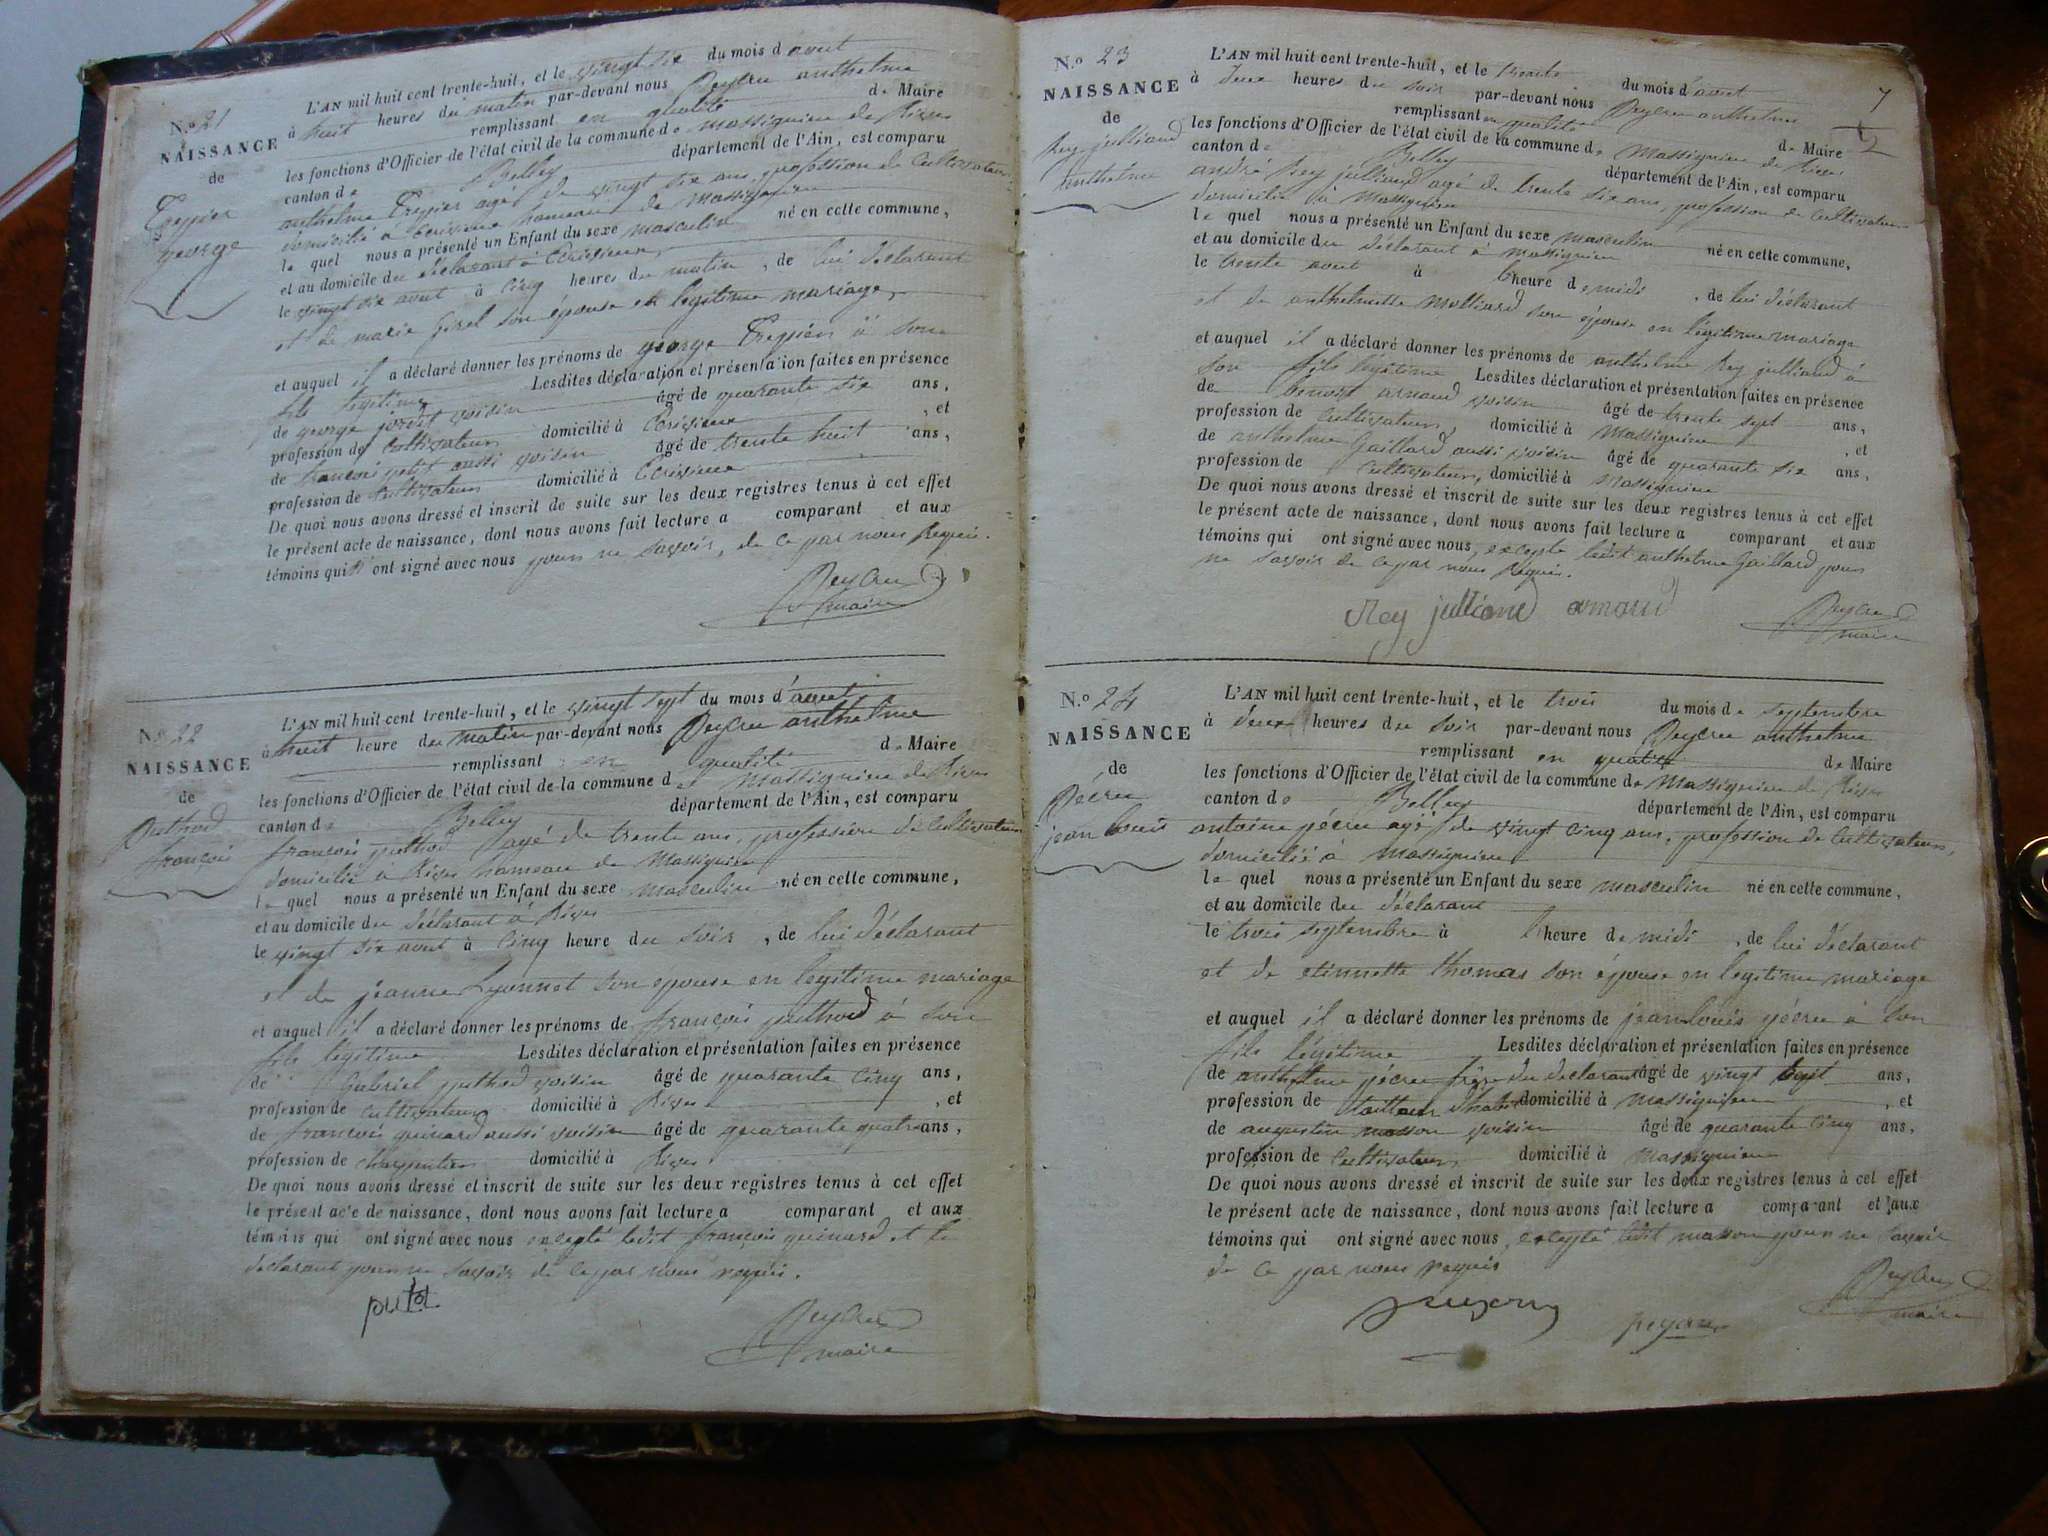 N.º 21
NAISSANCE
de
Trepier
george
L'AN mil huit cent trente-huit, et le vingt six du mois d'aout
à huit heures du matin par-devant nous Peycru anthelme
remplissant en qualité de Maire
les fonctions d'Officier de l'état civil de la commune de Massignieu de Rives
canton de Belley département de l'Ain, est comparu
anthelme Trepier agé de vingt six ans, profession de Cultivateur
domicilié à hameau de Massignieu
le quel nous a présenté un Enfant du sexe masculin né en cette commune,
et au domicile du déclarant à
le vingt six aout à Cinq heures du matin, de lui déclarant
et de marie girel son épouse en legitime mariage,
et auquel il a déclaré donner les prénoms de george Trepier à son
fils legitime Lesdites déclaration et présentation faites en présence
de george voisin âgé de quarante six ans,
profession de Cultivateur domicilié à , et
de françois petit aussi voisin âgé de trente huit ans,
profession de Cultivateur domicilié à
De quoi nous avons dressé et inscrit de suite sur les deux registres tenus à cet effet
le présent acte de naissance, dont nous avons fait lecture a comparant et aux
témoins qui ont signé avec nous pour ne savoir, de ce par nous Requis.
Peycru
maire
N.º 22
NAISSANCE
de
Puthod
françois
L'AN mil huit cent trente-huit, et le vingt sept du mois d'aout
à huit heure du matin par-devant nous Peycru anthelme
remplissant en qualité de Maire
les fonctions d'Officier de l'état civil de la commune de Massignieu de Rives
canton de Belley département de l'Ain, est comparu
françois puthod agé de trente ans, profession de Cultivateur
domicilié à Rives hameau de Massignieu
le quel nous a présenté un Enfant du sexe masculin né en cette commune,
et au domicile du déclarant à Rives
le vingt six aout à Cinq heure du soir, de lui déclarant
et de jeanne Lyonnet son epouse en legitime mariage
et auquel il a déclaré donner les prénoms de françois puthod à son
fils legitime Lesdites déclaration et présentation faites en présence
de Gabriel puthod voisin âgé de quarante Cinq ans,
profession de Cultivateur domicilié à Rives , et
de françois guinard aussi voisin âgé de quarante quatre ans,
profession de Charpentier domicilié à Rives
De quoi nous avons dressé et inscrit de suite sur les deux registres tenus à cet effet
le présent acte de naissance, dont nous avons fait lecture a comparant et aux
témoins qui ont signé avec nous excepté ledit françois guinard et le
déclarant pour ne savoir de ce par nous requis.
Peycru
maire
7
N.º 23
NAISSANCE
de
Rey julliand
anthelme
L'AN mil huit cent trente-huit, et le trente du mois d'aout
à deux heures du soir par-devant nous Peycru anthelme
remplissant en qualité de Maire
les fonctions d'Officier de l'état civil de la commune de Massignieu de Rives
canton de Belley département de l'Ain, est comparu
andré Rey julliand agé de trente six ans, profession de Cultivateur
domicilié à Massignieu
le quel nous a présenté un Enfant du sexe masculin né en cette commune,
et au domicile du déclarant à Massignieu
le trente aout à l'heure de midi, de lui déclarant
et de anthelmette Molliard son épouse en légitime mariage
et auquel il a déclaré donner les prénoms de anthelme Rey julliand à
son fils légitime Lesdites déclaration et présentation faites en présence
de benoit arnaud voisin âgé de trente sept ans,
profession de Cultivateur, domicilié à Massignieu , et
de anthelme Gaillard aussi voisin âgé de quarante six ans,
profession de Cultivateur, domicilié à Massignieu
De quoi nous avons dressé et inscrit de suite sur les deux registres tenus à cet effet
le présent acte de naissance, dont nous avons fait lecture a comparant et aux
témoins qui ont signé avec nous, excepté ledit anthelme Gaillard pour
ne savoir de ce par nous Requis.
Rey julliand arnaud Peycru
maire
N.º 24
NAISSANCE
de
Pecru
jean louis
L'AN mil huit cent trente-huit, et le trois du mois de septembre
à deux heures du soir par-devant nous Peycru anthelme
remplissant en qualité de Maire
les fonctions d'Officier de l'état civil de la commune de Massignieu de Rives
canton de Belley département de l'Ain, est comparu
antoine pécru agé de vingt Cinq ans, profession de Cultivateur,
domicilié à Massignieu
le quel nous a présenté un Enfant du sexe masculin né en cette commune,
et au domicile du déclarant
le trois septembre à l'heure de midi, de lui déclarant
et de etiennette thomas son épouse en legitime mariage
et auquel il a déclaré donner les prénoms de jean louis pécru à son
fils légitime Lesdites déclaration et présentation faites en présence
de anthelme pécru frère du declarant âgé de vingt sept ans,
profession de tailleur d'habit domicilié à Massignieu , et
de augustin masson voisin âgé de quarante Cinq ans,
profession de Cultivateur domicilié à Massignieu
De quoi nous avons dressé et inscrit de suite sur les deux registres tenus à cet effet
le présent acte de naissance, dont nous avons fait lecture a comparant et aux
témoins qui ont signé avec nous, excepté ledit masson pour ne savoir
de ce par nous requis
Peycru
maire